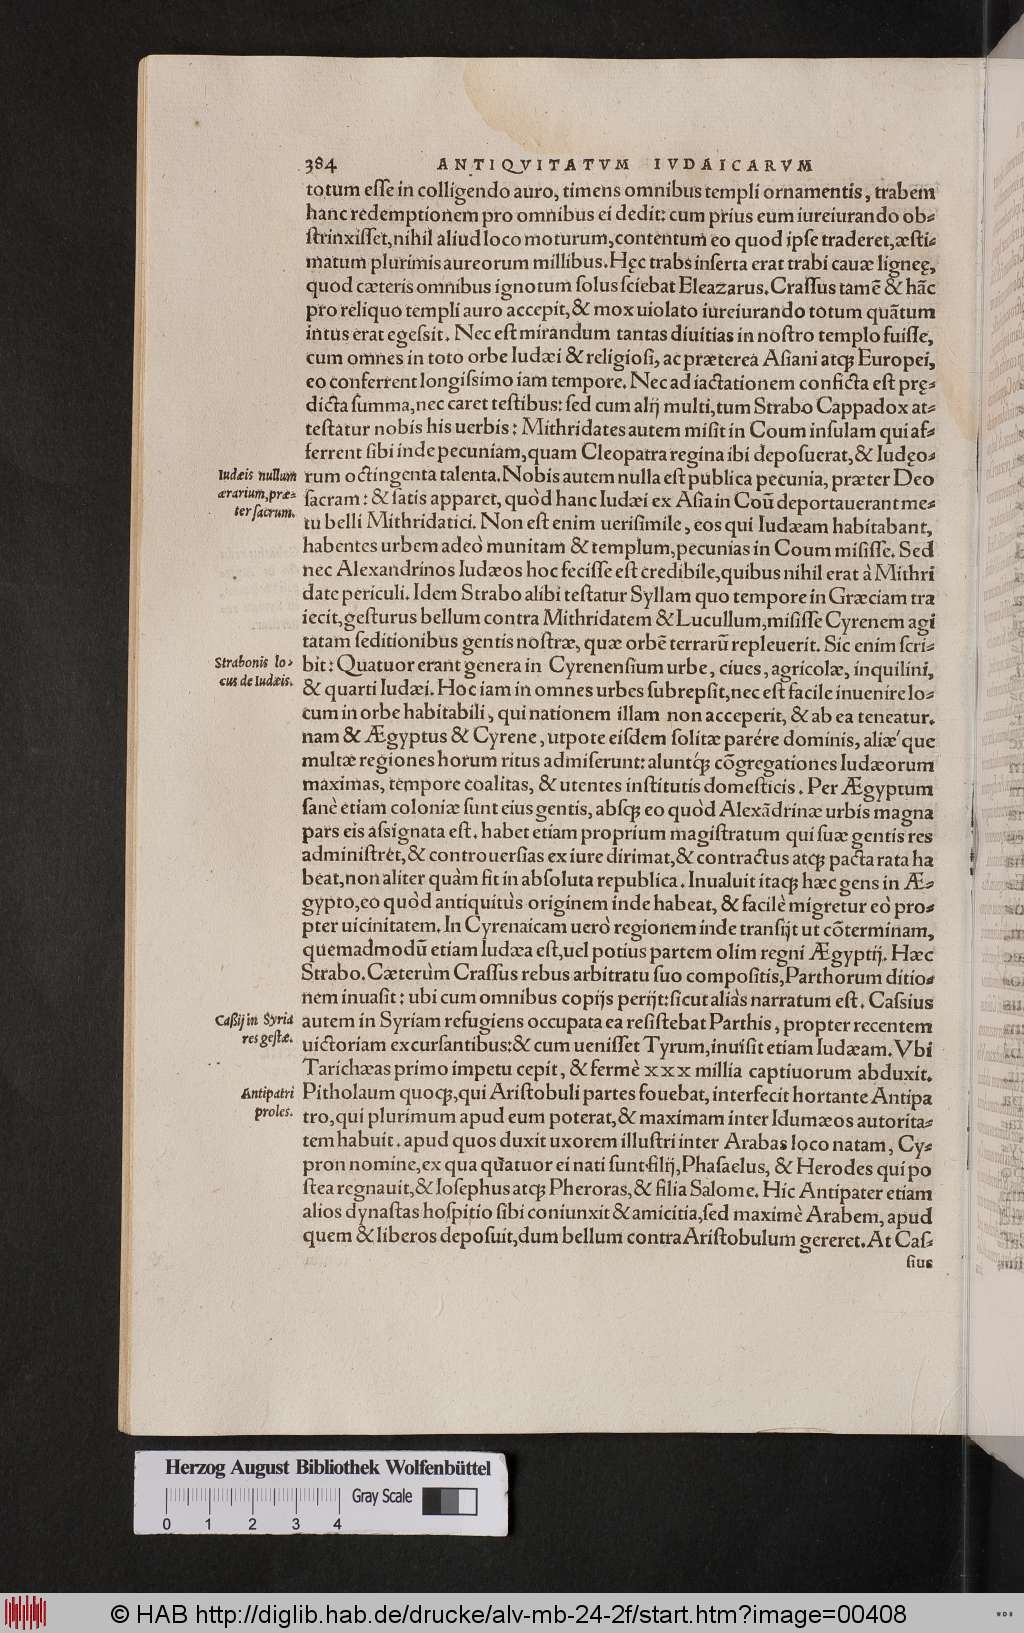 384 ANTIQVITATVM IVDAICARVM
totum eſſe in colligendo auro, timens omnibus templi ornamentis, trabem
hanc redemptionem pro omnibus ei dedit: cum prius eum iureiurando ob-
ſtrinxiſſet, nihil aliud loco moturum, contentum eo quod ipſe traderet, æſti-
matum plurimis aureorum millibus. Hęc trabs inſerta erat trabi cauæ ligneę,
quod cæteris omnibus ignotum ſolus ſciebat Eleazarus. Craſſus tamē & hāc
pro reliquo templi auro accepit, & mox uiolato iureiurando totum quātum
intus erat egeſsit. Nec eſt mirandum tantas diuitias in noſtro templo fuiſſe,
cum omnes in toto orbe Iudæi & religioſi, ac præterea Aſiani atq; Europei,
eo conferrent longiſsimo iam tempore. Nec ad iactationem conficta eſt prę-
dicta ſumma, nec caret teſtibus: ſed cum alij multi, tum Strabo Cappadox at-
teſtatur nobis his uerbis: Mithridates autem miſit in Coum inſulam qui af-
ferrent ſibi inde pecuniam, quam Cleopatra regina ibi depoſuerat, & Iudęo-
Iudæis nullum
ærarium, præ-
ter ſacrum.
rum octingenta talenta. Nobis autem nulla eſt publica pecunia, præter Deo
ſacram: & ſatis apparet, quòd hanc Iudæi ex Aſia in Coū deportauerant me-
tu belli Mithridatici. Non eſt enim ueriſimile, eos qui Iudæam habitabant,
habentes urbem adeò munitam & templum, pecunias in Coum miſiſſe. Sed
nec Alexandrinos Iudæos hoc feciſſe eſt credibile, quibus nihil erat à Mithri
date periculi. Idem Strabo alibi teſtatur Syllam quo tempore in Græciam tra
iecit, geſturus bellum contra Mithridatem & Lucullum, miſiſſe Cyrenem agi
tatam ſeditionibus gentis noſtræ, quæ orbē terrarū repleuerit. Sic enim ſcri-
Strabonis lo-
cus de Iudæis.
bit: Quatuor erant genera in Cyrenenſium urbe, ciues, agricolæ, inquilini,
& quarti Iudæi. Hoc iam in omnes urbes ſubrepſit, nec eſt facile inuenire lo-
cum in orbe habitabili, qui nationem illam non acceperit, & ab ea teneatur.
nam & Ægyptus & Cyrene, utpote eiſdem ſolitæ parére dominis, aliæ´que
multæ regiones horum ritus admiſerunt: aluntq́; cōgregationes Iudæorum
maximas, tempore coalitas, & utentes inſtitutis domeſticis. Per Ægyptum
ſanè etiam coloniæ ſunt eius gentis, abſq; eo quòd Alexādrinæ urbis magna
pars eis aſsignata eſt. habet etiam proprium magiſtratum qui ſuæ gentis res
adminiſtret, & controuerſias ex iure dirimat, & contractus atq; pacta rata ha
beat, non aliter quàm fit in abſoluta republica. Inualuit itaq; hæc gens in Æ-
gypto, eo quòd antiquitùs originem inde habeat, & facilè migretur eò pro-
pter uicinitatem. In Cyrenaicam uerò regionem inde tranſijt ut cōterminam,
quemadmodū etiam Iudæa eſt, uel potius partem olim regni Ægyptij. Hæc
Strabo. Cæterùm Craſſus rebus arbitratu ſuo compoſitis, Parthorum ditio-
nem inuaſit: ubi cum omnibus copijs perijt: ſicut aliàs narratum eſt. Caſsius
Caßij in Syria
res geſtæ.
autem in Syriam refugiens occupata ea reſiſtebat Parthis, propter recentem
uictoriam excurſantibus: & cum ueniſſet Tyrum, inuiſit etiam Iudæam. Vbi
Tarichæas primo impetu cepit, & fermè xxx millia captiuorum abduxit.
Antipatri
proles.
Pitholaum quoq;, qui Ariſtobuli partes fouebat, interfecit hortante Antipa
tro, qui plurimum apud eum poterat, & maximam inter Idumæos autorita-
tem habuit. apud quos duxit uxorem illuſtri inter Arabas loco natam, Cy-
pron nomine, ex qua quatuor ei nati ſunt filij, Phaſaelus, & Herodes qui po
ſtea regnauit, & Ioſephus atq; Pheroras, & filia Salome. Hic Antipater etiam
alios dynaſtas hoſpitio ſibi coniunxit & amicitia, ſed maximè Arabem, apud
quem & liberos depoſuit, dum bellum contra Ariſtobulum gereret. At Caſ-
ſius
Herzog August Bibliothek Wolfenbüttel
Gray Scale
0 1 2 3 4
© HAB http://diglib.hab.de/drucke/alv-mb-24-2f/start.htm?image=00408